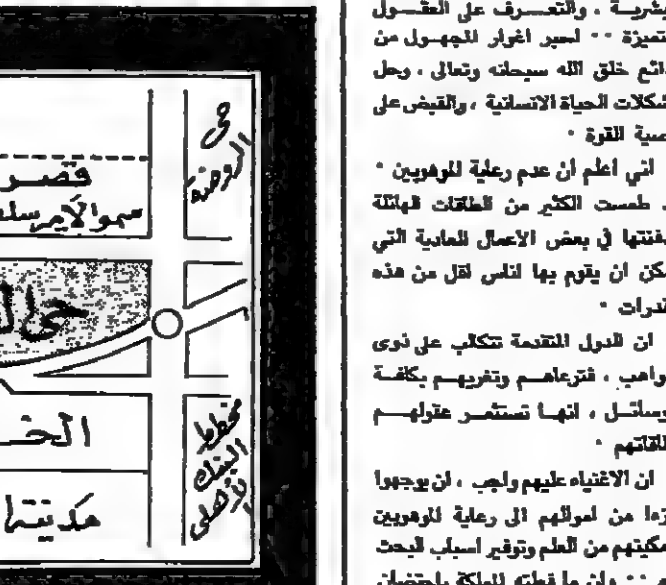 بشرية ، والتعرف على العقول
تميزة ٠٠ لسبر اغوار المجهول من
دائع خلق الله سبحانه وتعالى ، وحل
شكلات الحياة الانسانية ، والقبض على
صية القرة ٠
اني اعلم ان عدم رعاية الموهوبين ٠
طمست الكثير من الطاقات الهائلة
فنتها في بعض الاعمال العادية التي
كن ان يقوم بها اناس اقل من هذه
قدرات ٠
ان الدول المتقدمة تتكالب على ذوى
واهب ، فترعاهم وتغريهم بكافة
وسائل ، انها تستثمر عقولهم
اقاتهم ٠
ان الاغنياء عليهم واجب ، ان يوجهوا
زءا من اموالهم الى رعاية الموهوبين
مكينهم من العلم وتوفير اسباب البحث
وان ما قبلته المملكة باحتضان
حى
الروضة
قصر
سمو الأمير سلم
حى ال
الخ
مدينة
مخطط
البنك
الأهلى